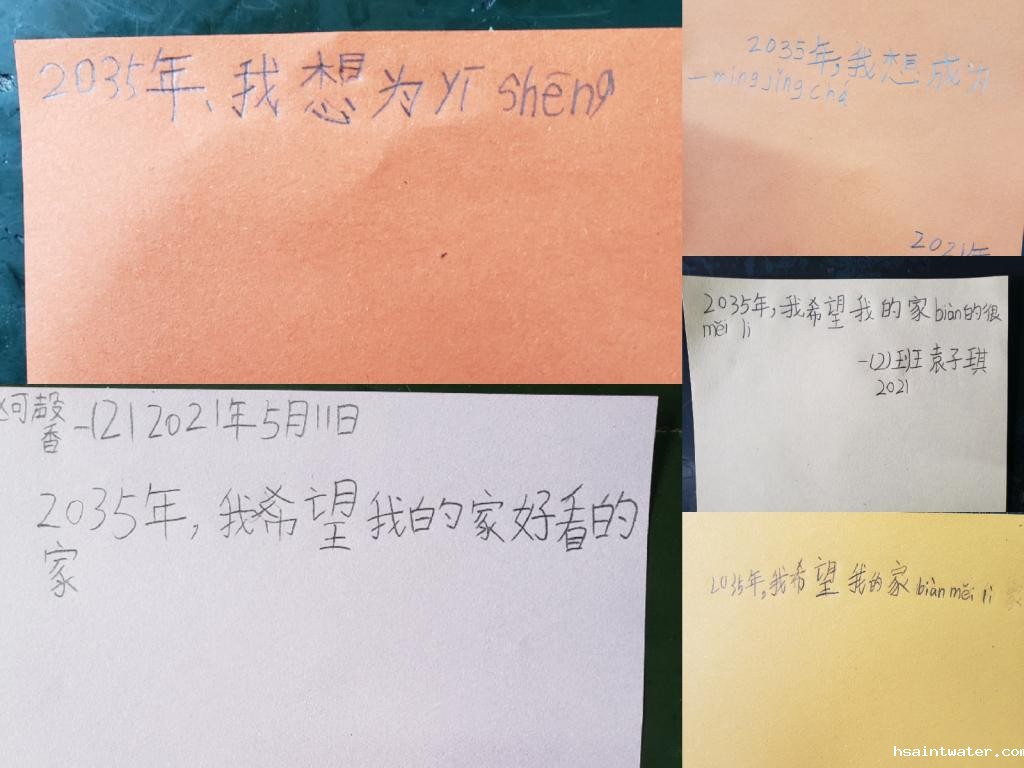 2035年、我想为yī shēng
2035年,我想成为
一mingjǐngchá
2021年
2035年,我希望我的家biàn的很
měi lì
一(2)班袁子琪
2021
馨
香一(2)2021年5月11日
2035年,我希望我的家好看的
家
2035年,我希望我的家biàn měi lì
hsaintwater.com